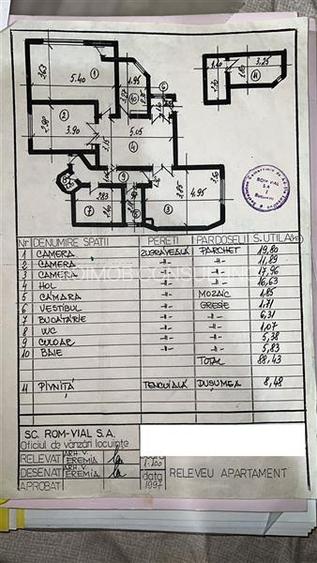 3.25
1.40
11
3.63
5.40
1
1.95
10
6
2
2.90
3.90
3.15
5.05
4
5
9
2.83
7
8
3
4.95
ROM-VIAL
S.A.
Nr DENUMIRE SPATII PERETI PARDOSELI S.UTILA(m)
1 CAMERA ZUGRAVEALA PARCHET 19,80
2 CAMERA -"- -"- 11,89
3 CAMERA -"- -"- 17,96
4 HOL -"- -"- 16,63
5 CAMARA -"- MOZAIC 1,85
6 VESTIBUL -"- GRESIE 1,71
7 BUCATARIE -"- -"- 6,31
8 WC -"- -"- 1,07
9 CULOAR -"- -"- 5,38
10 BAIE -"- -"- 5,83
TOTAL 88,43
11 PIVNITA TENCUIALA DUSUMEA 8,48
SC. ROM-VIAL S.A.
Oficiul de vânzări locuinte
RELEVAT ARH. V. EREMIA
DESENAT ARH. V. EREMIA
APROBAT
1:100
data
1997
RELEVEU APARTAMENT